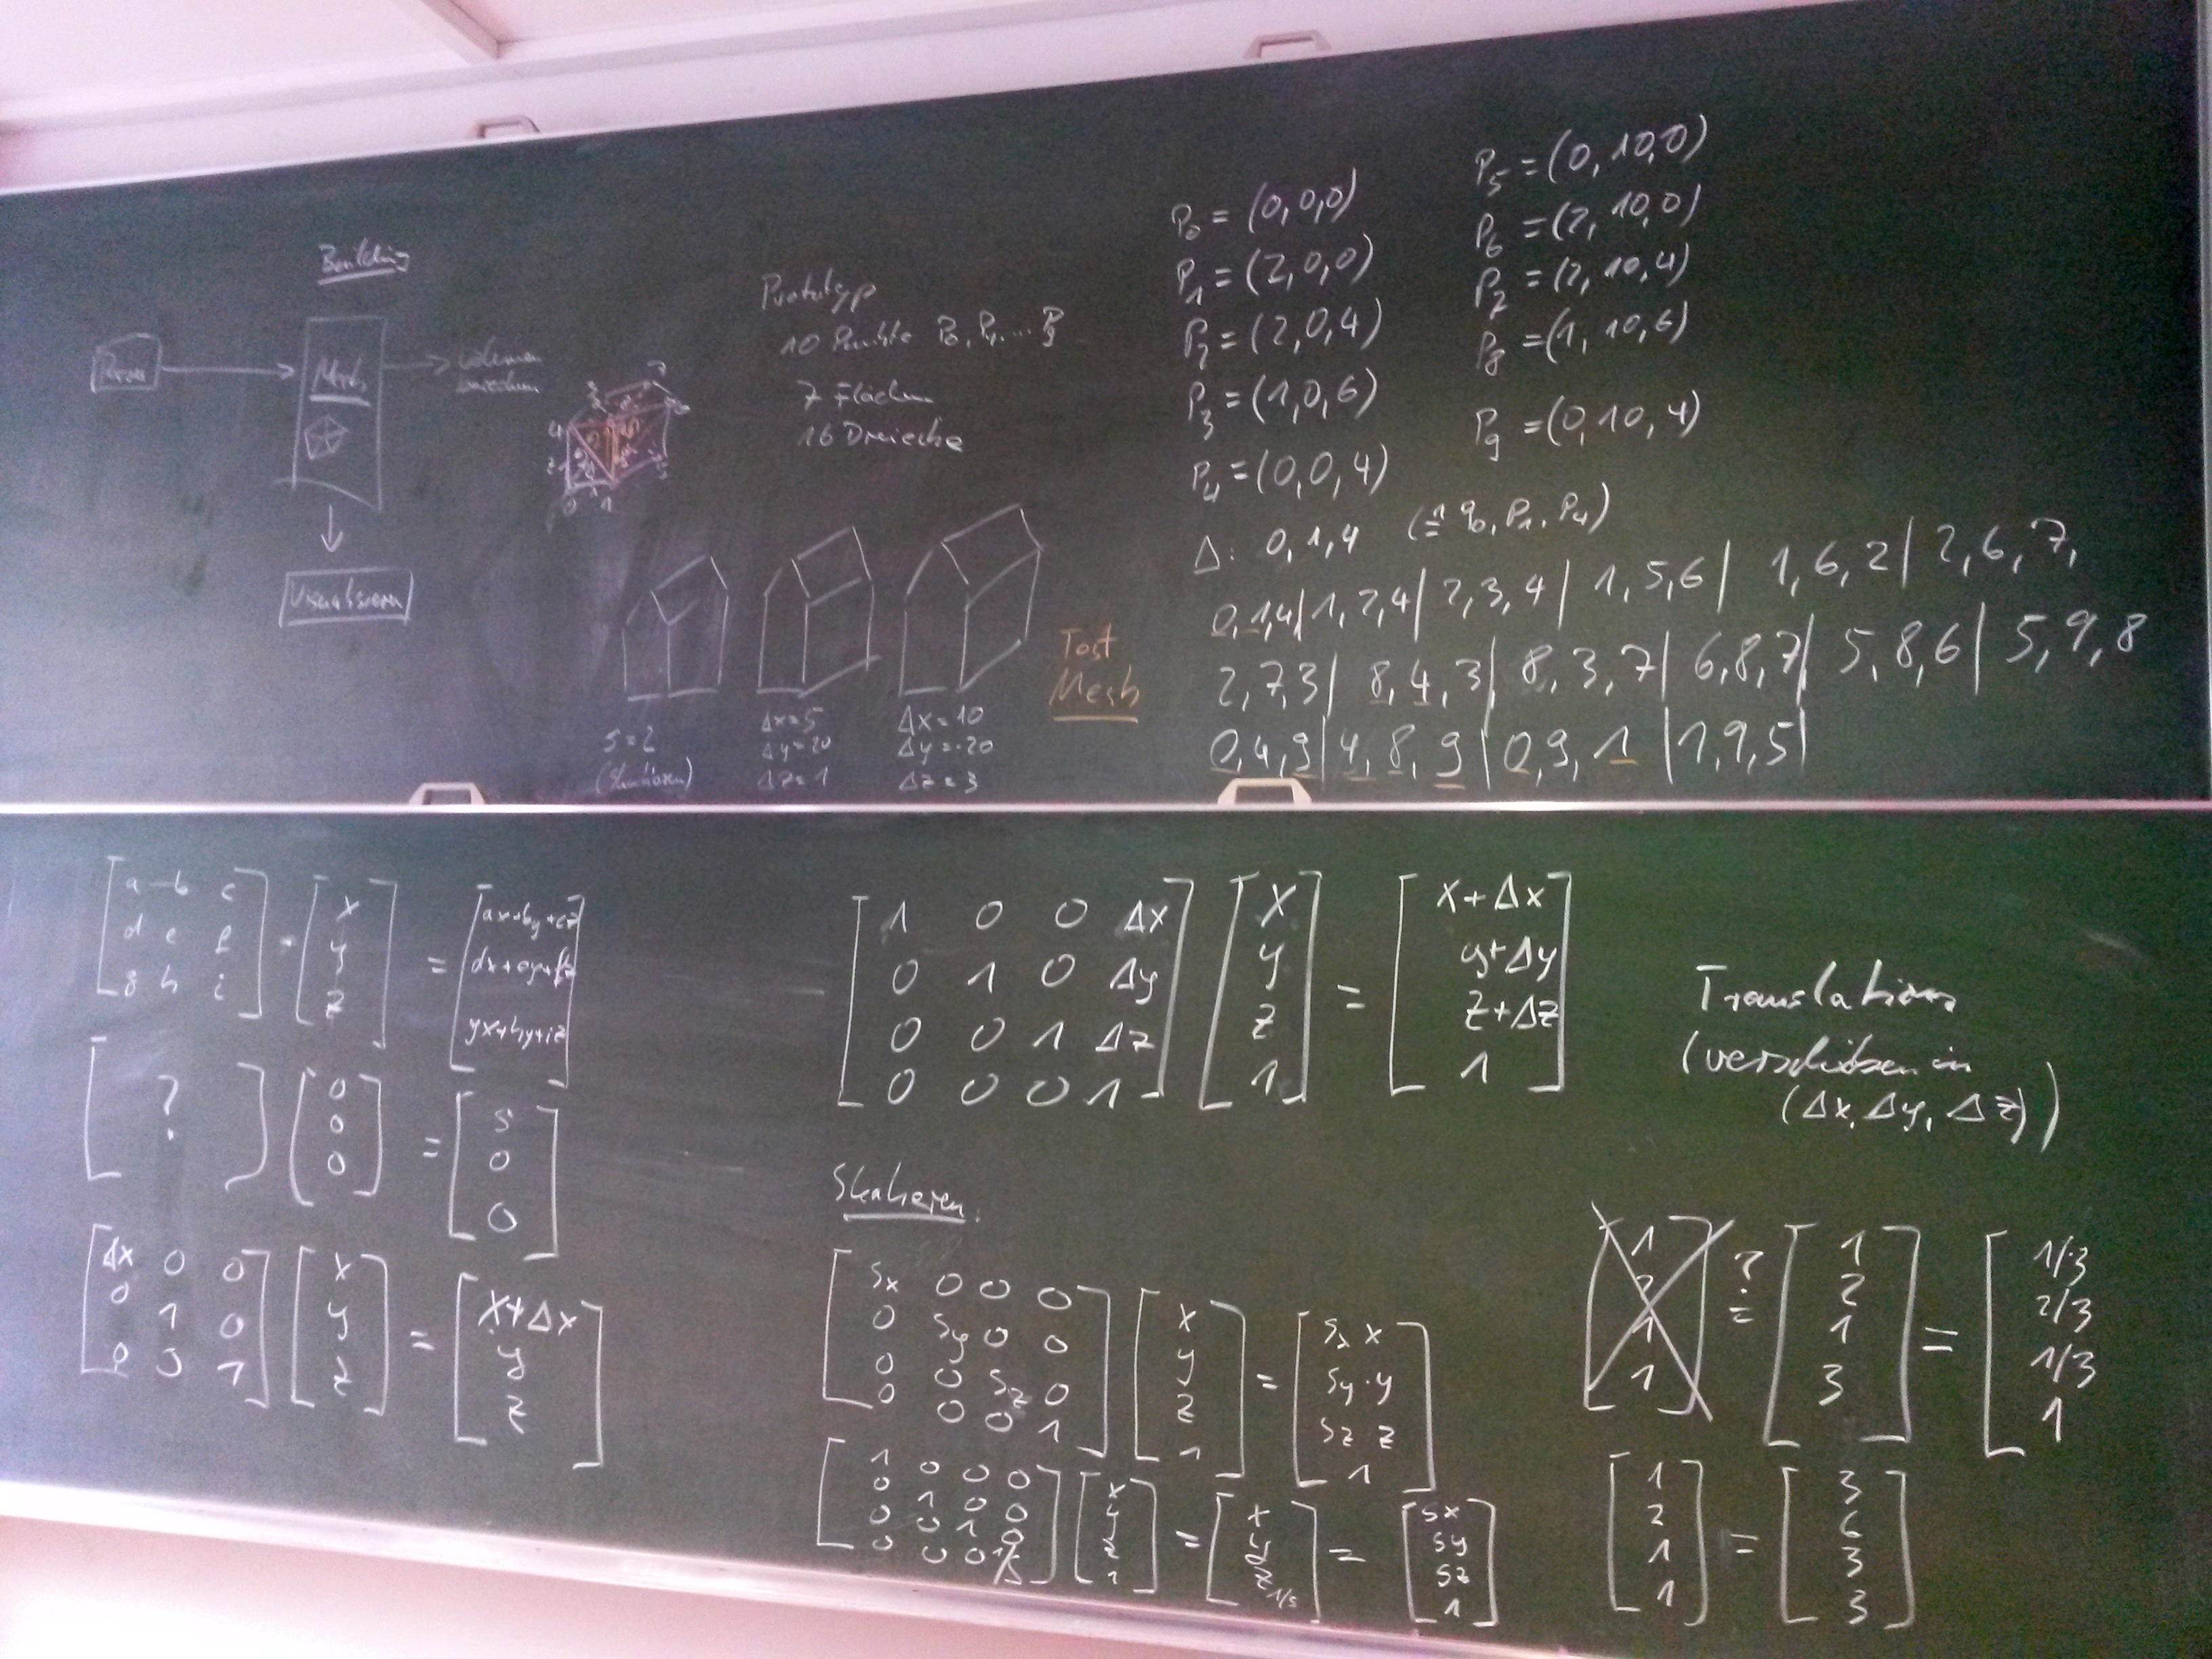 Building
Mesh
Volumen
berechnen
Visualisieren
Prototyp
10 Punkte P₀, P₁, ... P₉
7 Flächen
16 Dreiecke
s = 2
(Skalieren)
Δx = 5
Δy = 20
Δz = 1
Δx = 10
Δy = -20
Δz = 3
Test
Mesh
P₀ = (0,0,0)
P₁ = (2,0,0)
P₂ = (2,0,4)
P₃ = (1,0,6)
P₄ = (0,0,4)
P₅ = (0,10,0)
P₆ = (2,10,0)
P₇ = (2,10,4)
P₈ = (1,10,6)
P₉ = (0,10,4)
Δ: 0,1,4 (≙ P₀, P₁, P₄)
0,1,4 | 1,2,4 | 2,3,4 | 1,5,6 | 1,6,2 | 2,6,7,
2,7,3 | 8,4,3 | 8,3,7 | 6,8,7 | 5,8,6 | 5,9,8
0,4,9 | 4,8,9 | 0,9,1 | 1,9,5 |
[a b c; d e f; g h i] · [x; y; z] = [ax+by+cz; dx+ey+fz; gx+hy+iz]
[?] [0; 0; 0] = [5; 0; 0]
[Δx 0 0; 0 1 0; 0 0 1] [x; y; z] = [x+Δx; y; z]
[1 0 0 Δx; 0 1 0 Δy; 0 0 1 Δz; 0 0 0 1] [x; y; z; 1] = [x+Δx; y+Δy; z+Δz; 1]
Translation
(verschieben in
(Δx, Δy, Δz))
Skalieren:
[sx 0 0 0; 0 sy 0 0; 0 0 sz 0; 0 0 0 1] [x; y; z; 1] = [sx x; sy·y; sz z; 1]
[1 0 0 0; 0 1 0 0; 0 0 1 0; 0 0 0 1/s] [x; y; z; 1] = [x; y; z; 1/s] = [sx; sy; sz; 1]
[1; 2; 1; 1] ?= [1; 2; 1; 3] = [1/3; 2/3; 1/3; 1]
[1; 2; 1; 1] = [3; 6; 3; 3]